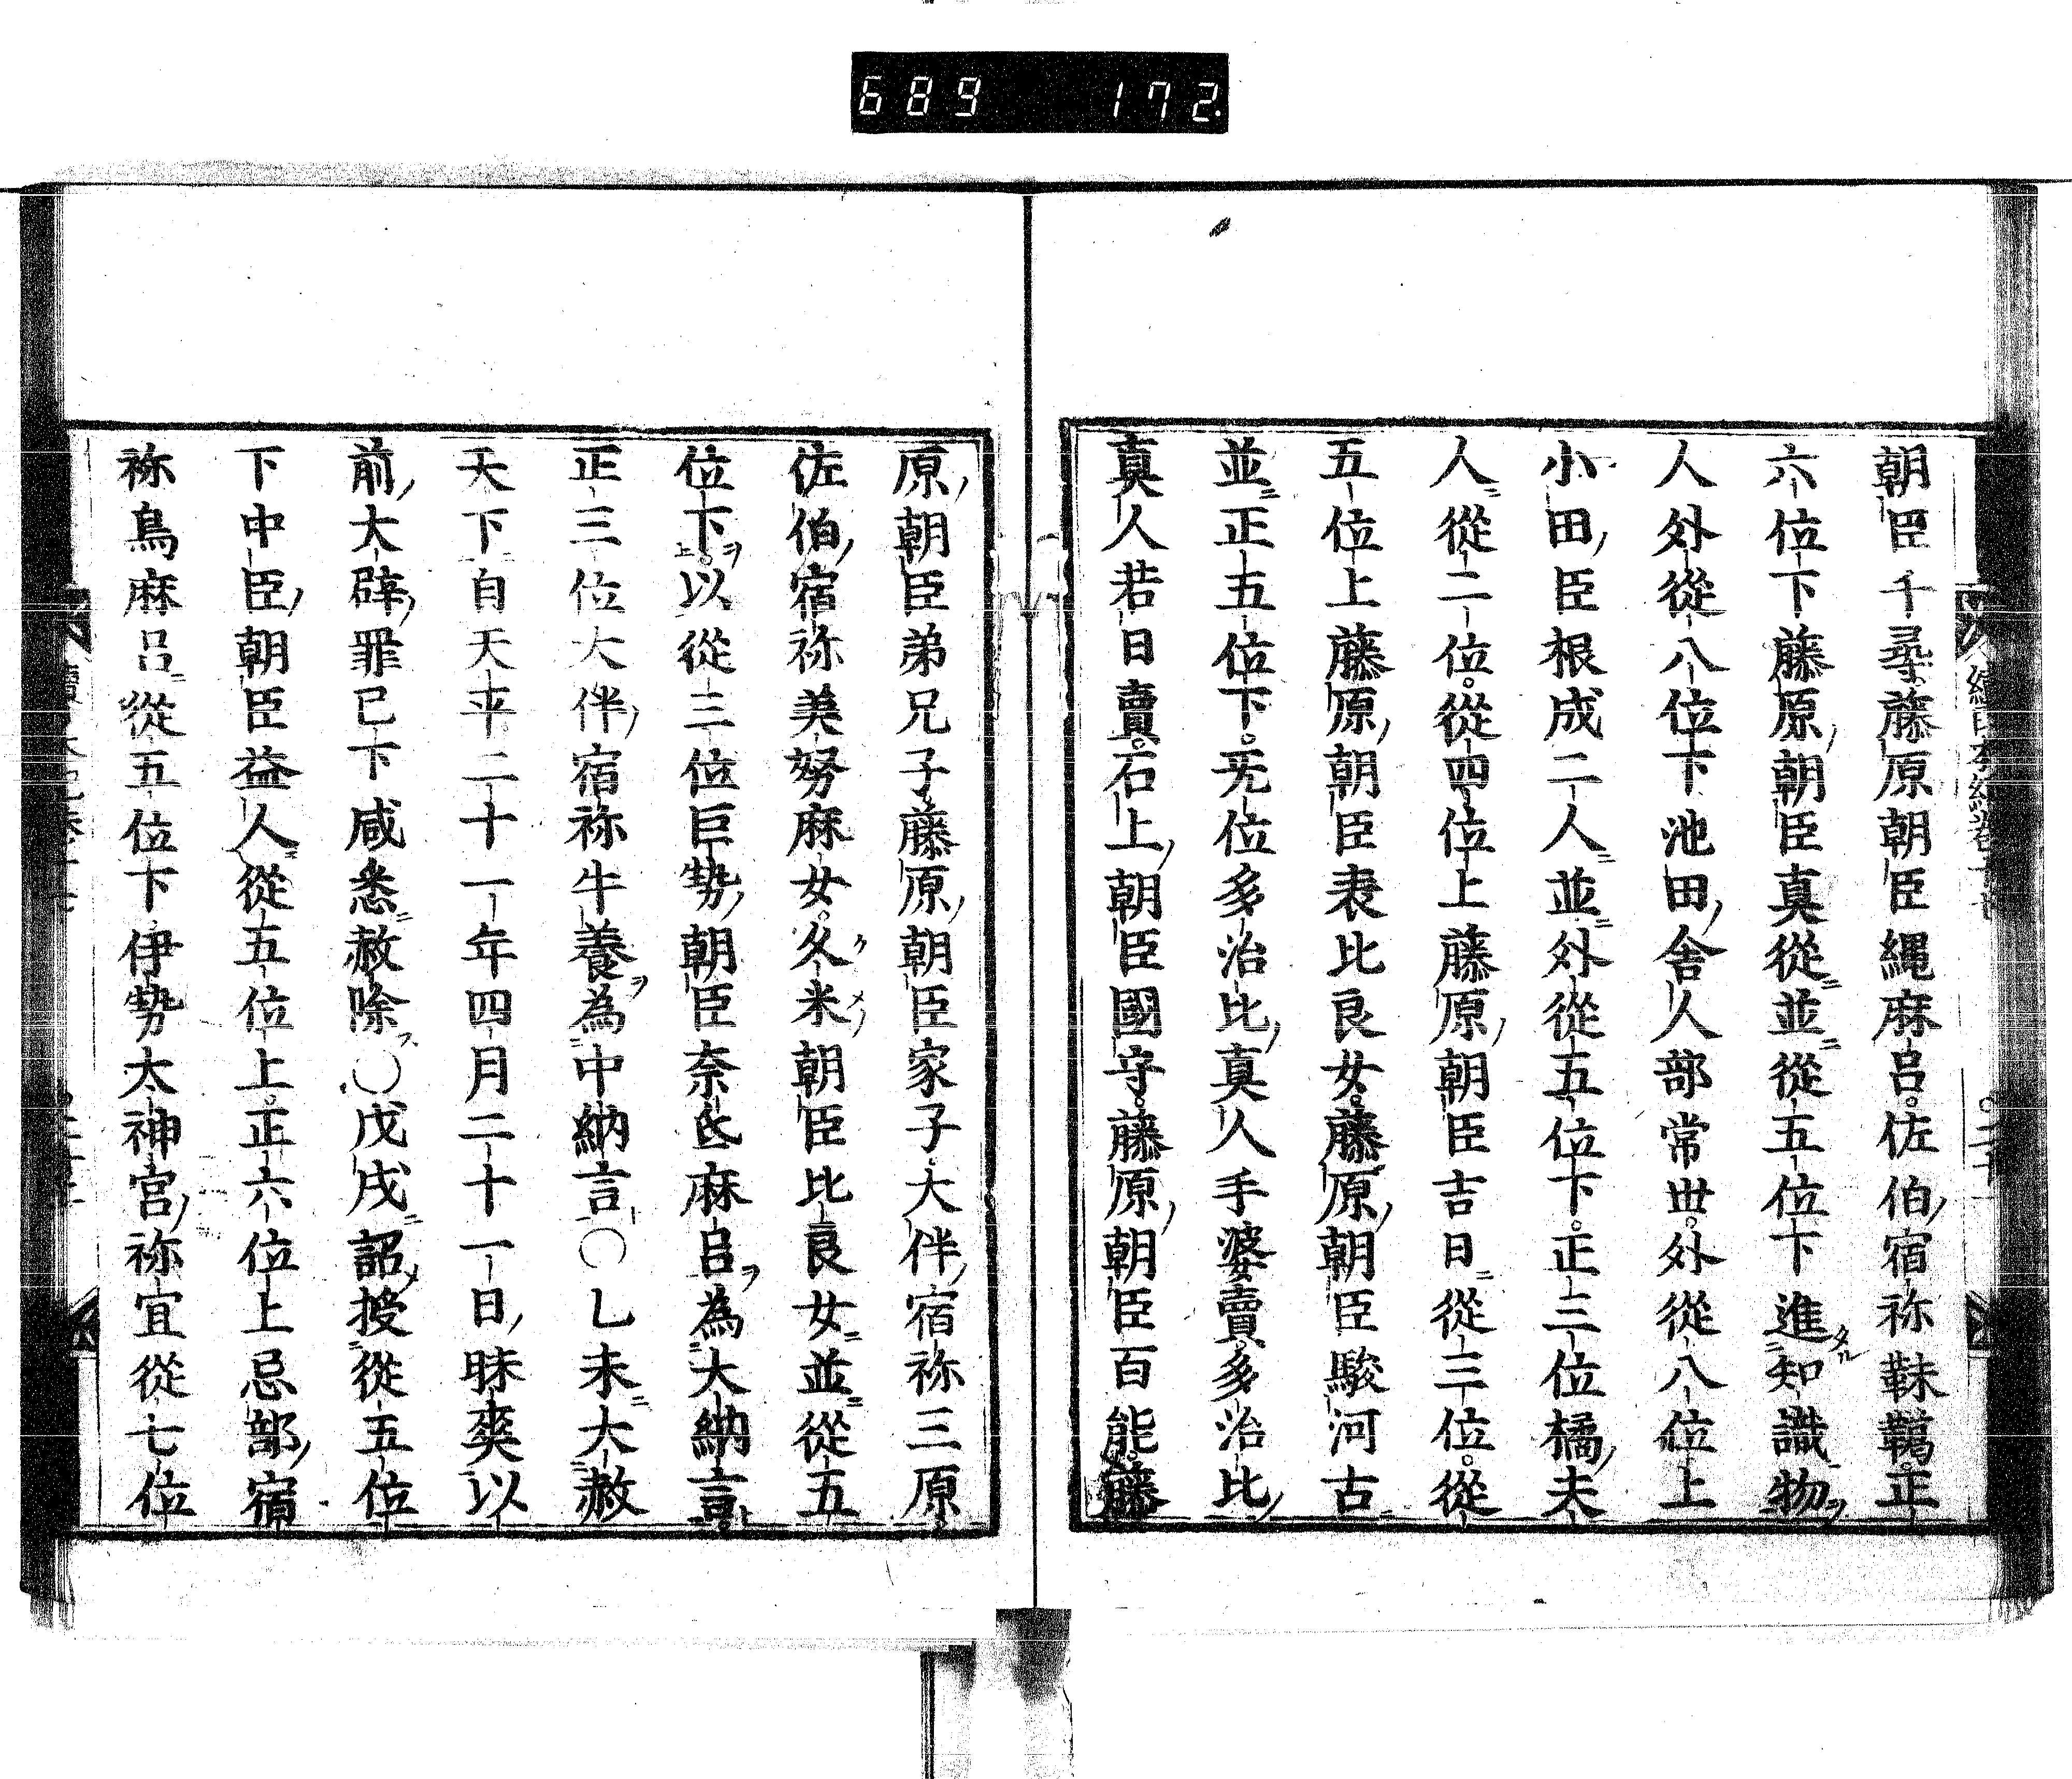 689 172
朝臣千尋藤原朝臣縄麻呂佐伯宿祢靺鞨正
六位下藤原朝臣真從並從五位下進知識物
人外從八位下池田舎人部常世外從八位上
小田臣根成二人並外從五位下正三位橘夫
人從二位從四位上藤原朝臣吉日從三位從
五位上藤原朝臣袁比良女藤原朝臣駿河古
並正五位下无位多治比真人手婆賣多治比
真人若日賣石上朝臣國守藤原朝臣百能藤
原朝臣弟兄子藤原朝臣家子大伴宿祢三原
佐伯宿祢美努麻女久米朝臣比良女並從五
位下以從三位巨勢朝臣奈氐麻呂為大納言
正三位大伴宿祢牛養為中納言○乙未大赦
天下自天平二十一年四月二十一日昧爽以
前大辟罪已下咸悉赦除○戊戌詔授從五位
下中臣朝臣益人從五位上正六位上忌部宿
祢鳥麻呂從五位下伊勢太神宮祢宜從七位